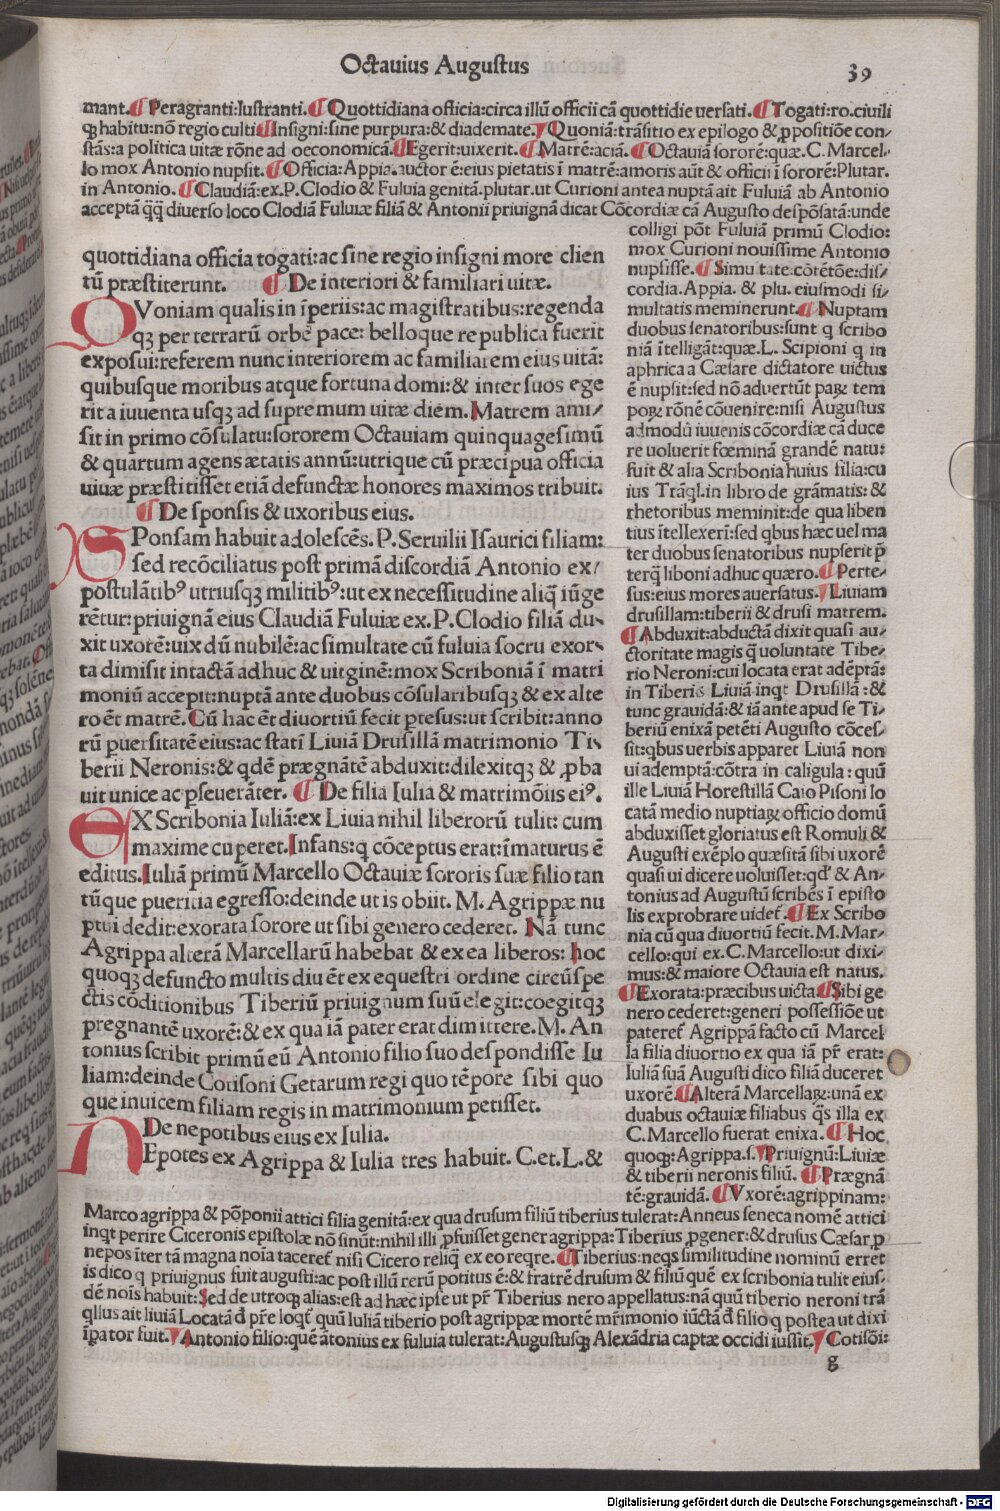 Octauius Augustus
39
mant. ¶ Peragranti:lustranti. ¶ Quottidiana officia:circa illũ officii cã quottidie uersati. ¶ Togati:ro.ciuili
ꝙ habitu:nõ regio culti ¶ Insigni:sine purpura:& diademate. ¶ Quoniã:trãsitio ex epilogo & ꝓpositiõe con-
stãs:a politica uitæ rõne ad oeconomicã. ¶ Egerit:uixerit. ¶ Matrẽ:aciã. ¶ Octauiã sororẽ:quæ.C.Marcel-
lo mox Antonio nupsit. ¶ Officia:Appia.auctor ẽ:eius pietatis ĩ matrẽ:amoris aũt & officii ĩ sororẽ:Plutar.
in Antonio. ¶ Claudiã:ex.P.Clodio & Fuluia genitã.plutar.ut Curioni antea nuptã ait Fuluiã ab Antonio
acceptã q̃q̃ diuerso loco Clodiã Fuluiæ filiã & Antonii priuignã dicat Cõcordiæ cã Augusto despõsatã:unde
quottidiana officia togati:ac sine regio insigni more clien
tũ præstiterunt. ¶ De interiori & familiari uitæ.
QVoniam qualis in ĩperiis:ac magistratibus:regenda
qꝫ per terrarũ orbẽ pace: belloque republica fuerit
exposui:referem nunc interiorem ac familiarem eius uitã:
quibusque moribus atque fortuna domi:& inter suos ege
rit a iuuenta usqꝫ ad supremum uitæ diem. Matrem ami/
sit in primo cõsulatu:sororem Octauiam quinquagesimũ
& quartum agens ætatis annũ:utrique cũ præcipua officia
uiuæ præstitisset etiã defunctæ honores maximos tribuit.
¶ De sponsis & uxoribus eius.
SPonsam habuit adolescẽs.P.Seruilii Isaurici filiam:
sed recõciliatus post primã discordiã Antonio ex/
postulãtibꝰ utriusqꝫ militibꝰ:ut ex necessitudine aliq̃ iũge
rẽtur:priuignã eius Claudiã Fuluiæ ex.P.Clodio filiã du-
xit uxorẽ:uix dũ nubilẽ:ac simultate cũ fuluia socru exor-
ta dimisit intactã adhuc & uirginẽ:mox Scriboniã ĩ matri
moniũ accepit:nuptã ante duobus cõsularibusqꝫ & ex alte
ro ẽt matrẽ. Cũ hac ẽt diuortiũ fecit ꝑtesus:ut scribit:anno
rũ ꝑuersitatẽ eius:ac statĩ Liuiã Drusillã matrimonio Ti-
berii Neronis:& qdẽ prægnãtẽ abduxit:dilexitqꝫ & ꝓba
uit unice ac ꝑseuerãter. ¶ De filia Iulia & matrimõiis eiꝰ.
EX Scribonia Iuliã:ex Liuia nihil liberorũ tulit: cum
maxime cuperet. Infans:q cõceptus erat:ĩmaturus ẽ
editus. Iuliã primũ Marcello Octauiæ sororis suæ filio tan
tũque pueritia egresso:deinde ut is obiit. M. Agrippæ nu
ptui dedit:exorata sorore ut sibi genero cederet. Nã tunc
Agrippa alterã Marcellarũ habebat & ex ea liberos: hoc
quoqꝫ defuncto multis diu ẽt ex equestri ordine circũspe
ctis cõditionibus Tiberiũ priuignum suũ elegit:coegitqꝫ
pregnantẽ uxorẽ:& ex qua iã pater erat dimittere. M. An
tonius scribit primũ eũ Antonio filio suo despondisse Iu
liam:deinde Cotisoni Getarum regi quo tẽpore sibi quo
que inuicem filiam regis in matrimonium petisset.
De nepotibus eius ex Iulia.
NEpotes ex Agrippa & Iulia tres habuit. C.et.L.&
colligi põt Fuluiã primũ Clodio:
mox Curioni nouissime Antonio
nupsisse. ¶ Simultate:cõtẽtõe:dis/
cordia. Appia. & plu. eiusmodi si/
multatis meminerunt. ¶ Nuptam
duobus senatoribus:sunt q scribo
niã ĩtelligãt:quæ.L. Scipioni q in
aphrica a Cæsare dictatore uictus
ẽ nupsit:sed nõ aduertũt paꝝ tem
poꝝ rõnẽ cõuenire:nisi Augustus
admodũ iuuenis cõcordiæ cã duce
re uoluerit fœminã grandẽ natu:
fuit & alia Scribonia huius filia:cu
ius Trãql.in libro de grãmatis:&
rhetoribus meminit:de qua liben
tius ĩtellexerĩ:sed qbus hæc uel ma
ter duobus senatoribus nupserit p̃
terq̃ liboni adhuc quæro. ¶ Perte-
sus:eius mores auersatus. ¶ Liuiam
drusillam:tiberii & drusi matrem.
¶ Abduxit:abductã dixit quasi au/
ctoritate magis q̃ uoluntate Tibe/
rio Neroni:cui locata erat adẽptã:
in Tiberio Liuiã inqt Drusillã :&
tunc grauidã:& iã ante apud se Ti/
beriũ enixã petẽti Augusto cõces/
sit:qbus uerbis apparet Liuiã non
ui ademptã:cõtra in caligula: quũ
ille Liuiã Horestillã Caio Pisoni lo
catã medio nuptiaꝝ officio domũ
abduxisset gloriatus est Romuli &
Augusti exẽplo quæsitã sibi uxorẽ
quasi ui dicere uoluisset:qd' & An/
tonius ad Augustũ scribẽs ĩ episto
lis exprobrare uidet̃. ¶ Ex Scribo
nia cũ qua diuortiũ fecit. M. Mar/
cello:qui ex.C.Marcello:ut dixi/
mus:& maiore Octauia est natus.
¶ Exorata:præcibus uicta. ¶ Sibi ge
nero cederet:generi possessiõe ut
pateret̃ Agrippã facto cũ Marcel
la filia diuortio ex qua iã pr̃ erat:
Iuliã suã Augusti dico filiã duceret
uxorẽ. ¶ Alterã Marcellaꝝ:unã ex
duabus octauiæ filiabus q̃s illa ex
C.Marcello fuerat enixa. ¶ Hoc
quoqꝫ:Agrippa.s. ¶ Priuignũ:Liuiæ
& tiberii neronis filiũ. ¶ Prægnã
tẽ:grauidã. ¶ Vxorẽ:agrippinam:
Marco agrippa & põponii attici filia genitã:ex qua drusum filiũ tiberius tulerat:Anneus seneca nomẽ attici
inqt perire Ciceronis epistolæ nõ sinũt:nihil illi ꝓfuisset gener agrippa:Tiberius ꝓgener:& drusus Cæsar ꝓ
nepos ĩter tã magna noĩa taceret̃ nisi Cicero reliq̃ ex eo reqre. ¶ Tiberius:neqꝫ similitudine nominũ erret
is dico q priuignus fuit augusti:ac post illũ rerũ potitus ẽ:& fratrẽ drusum & filiũ quẽ ex scribonia tulit eius/
dẽ noĩs habuit: Sed de utroqꝫ alias:est ad hæc ipse ut pr̃ Tiberius nero appellatus:nã quũ tiberio neroni trã
qllus ait liuiã Locatã đ pr̃e loqt̃ quũ Iuliã tiberio post agrippæ mortẽ mr̃imonio iũctã đ filio q postea ut dixi
ĩpator fuit. ¶ Antonio filio:quẽ ãtonius ex fuluia tulerat:Augustusqꝫ Alexãdria captæ occidi iussit. ¶ Cotisõi:
g
Digitalisierung gefördert durch die Deutsche Forschungsgemeinschaft - DFG